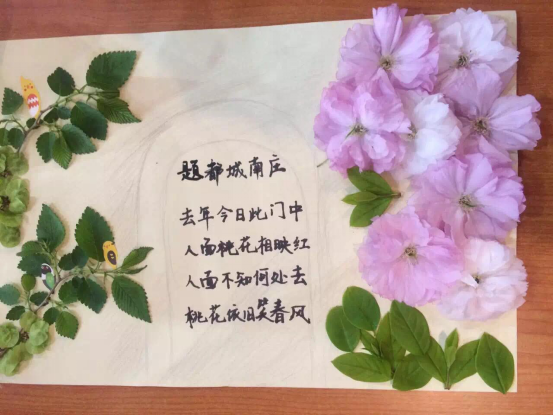 题都城南庄
去年今日此门中
人面桃花相映红
人面不知何处去
桃花依旧笑春风